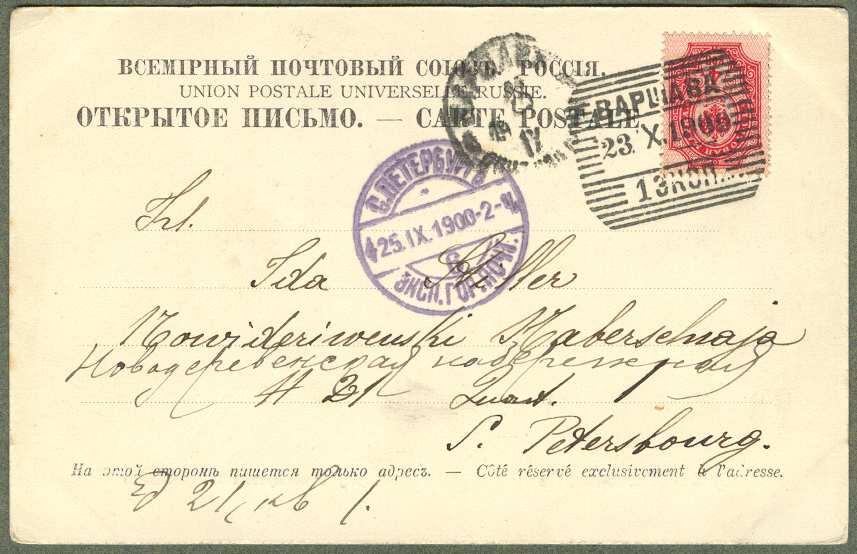 ВСЕМІРНЫЙ ПОЧТОВЫЙ СОЮЗЪ. РОССІЯ.
UNION POSTALE UNIVERSELLE. RUSSIE.
ОТКРЫТОЕ ПИСЬМО. — CARTE POSTALE
ВАРШАВА
23.X.1900
1 ЭКСП.
С. ПЕТЕРБУРГЪ
25.IX.1900-2-Ч.
ЭКСП. ГОР. ПОЧТ.
Frl.
Ida
Nowideriwenski Naberschnaja
Новодеревенская набережная
N 21 Quart.
S. Petersbourg.
На этой сторонѣ пишется только адресъ. — Côté réservé exclusivement à l'adresse.
21, кв 1.